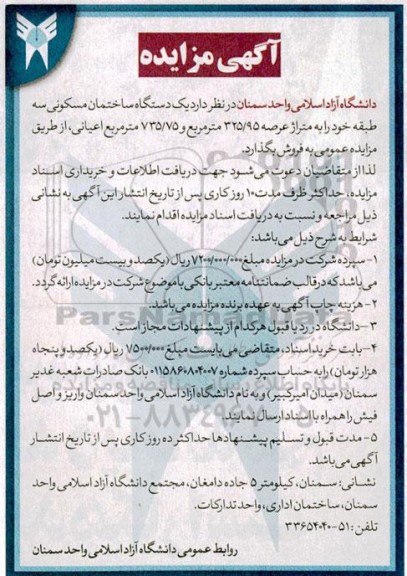 آگهی مزایده
دانشگاه آزاد اسلامی واحد سمنان در نظر دارد یک دستگاه ساختمان مسکونی سه
طبقه خود را به متراژ عرصه ۳۲۵/۹۵ مترمربع و ۷۳۵/۷۵ مترمربع اعیانی، از طریق
مزایده عمومی به فروش بگذارد.
لذا از متقاضیان دعوت می‌شود جهت دریافت اطلاعات و خریداری اسناد
مزایده، حداکثر ظرف مدت ۱۰ روز کاری پس از تاریخ انتشار این آگهی به نشانی
ذیل مراجعه و نسبت به دریافت اسناد مزایده اقدام نمایند.
شرایط به شرح ذیل می‌باشد:
۱- سپرده شرکت در مزایده مبلغ ۷۲۰۰/۰۰۰/۰۰۰ ریال (یکصد و بیست میلیون تومان)
می‌باشد که در قالب ضمانتنامه معتبر بانکی با موضوع شرکت در مزایده ارائه گردد.
۲- هزینه چاپ آگهی به عهده برنده مزایده می‌باشد.
۳- دانشگاه در رد یا قبول هر کدام از پیشنهادات مجاز است.
۴- بابت خرید اسناد، متقاضی می‌بایست مبلغ ۷۵۰۰/۰۰۰ ریال (یکصد و پنجاه
هزار تومان) را به حساب سپرده شماره ۰۱۱۵۸۶۰۸۰۴۰۰۷ بانک صادرات شعبه غدیر
سمنان (میدان امیرکبیر) و به نام دانشگاه آزاد اسلامی واحد سمنان واریز و اصل
فیش را همراه با اسناد ارسال نمایند.
۵- مدت قبول و تسلیم پیشنهادها حداکثر ده روز کاری پس از تاریخ انتشار
آگهی می‌باشد.
نشانی: سمنان، کیلومتر ۵ جاده دامغان، مجتمع دانشگاه آزاد اسلامی واحد
سمنان، ساختمان اداری، واحد تدارکات.
تلفن: ۵۱-۳۳۶۵۴۰۴۰
روابط عمومی دانشگاه آزاد اسلامی واحد سمنان